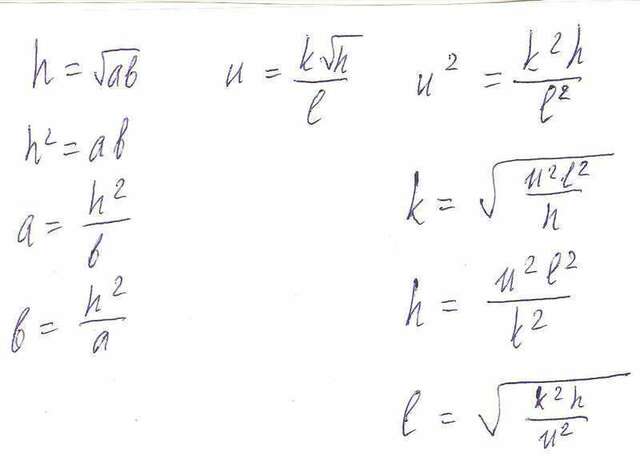 h = √ab
h² = ab
a = h²/b
b = h²/a
u = k√h/l
u² = k²h/l²
k = √(u²l²/h)
h = u²l²/k²
l = √(k²h/u²)